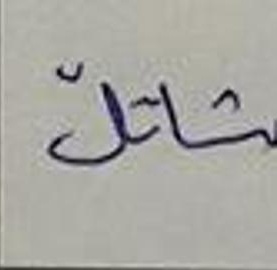 مشاتل